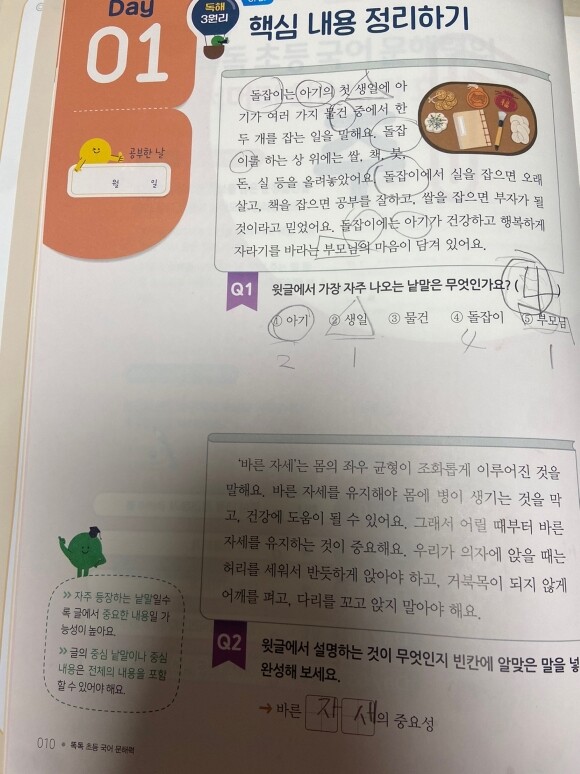 Day
01
독해
3원리
핵심 내용 정리하기
공부한 날
월 일
돌잡이는 아기의 첫 생일에 아
기가 여러 가지 물건 중에서 한
두 개를 잡는 일을 말해요. 돌잡
이를 하는 상 위에는 쌀, 책, 붓,
돈, 실 등을 올려놓았어요. 돌잡이에서 실을 잡으면 오래
살고, 책을 잡으면 공부를 잘하고, 쌀을 잡으면 부자가 될
것이라고 믿었어요. 돌잡이에는 아기가 건강하고 행복하게
자라기를 바라는 부모님의 마음이 담겨 있어요.
Q1 윗글에서 가장 자주 나오는 낱말은 무엇인가요? ( 4 )
① 아기 ② 생일 ③ 물건 ④ 돌잡이 ⑤ 부모님
2 1 4 1
'바른 자세'는 몸의 좌우 균형이 조화롭게 이루어진 것을
말해요. 바른 자세를 유지해야 몸에 병이 생기는 것을 막
고, 건강에 도움이 될 수 있어요. 그래서 어릴 때부터 바른
자세를 유지하는 것이 중요해요. 우리가 의자에 앉을 때는
허리를 세워서 반듯하게 앉아야 하고, 거북목이 되지 않게
어깨를 펴고, 다리를 꼬고 앉지 말아야 해요.
>> 자주 등장하는 낱말일수
록 글에서 중요한 내용일 가
능성이 높아요.
>> 글의 중심 낱말이나 중심
내용은 전체의 내용을 포함
할 수 있어야 해요.
Q2 윗글에서 설명하는 것이 무엇인지 빈칸에 알맞은 말을 넣
완성해 보세요.
→ 바른 자 세의 중요성
010 • 똑똑 초등 국어 문해력